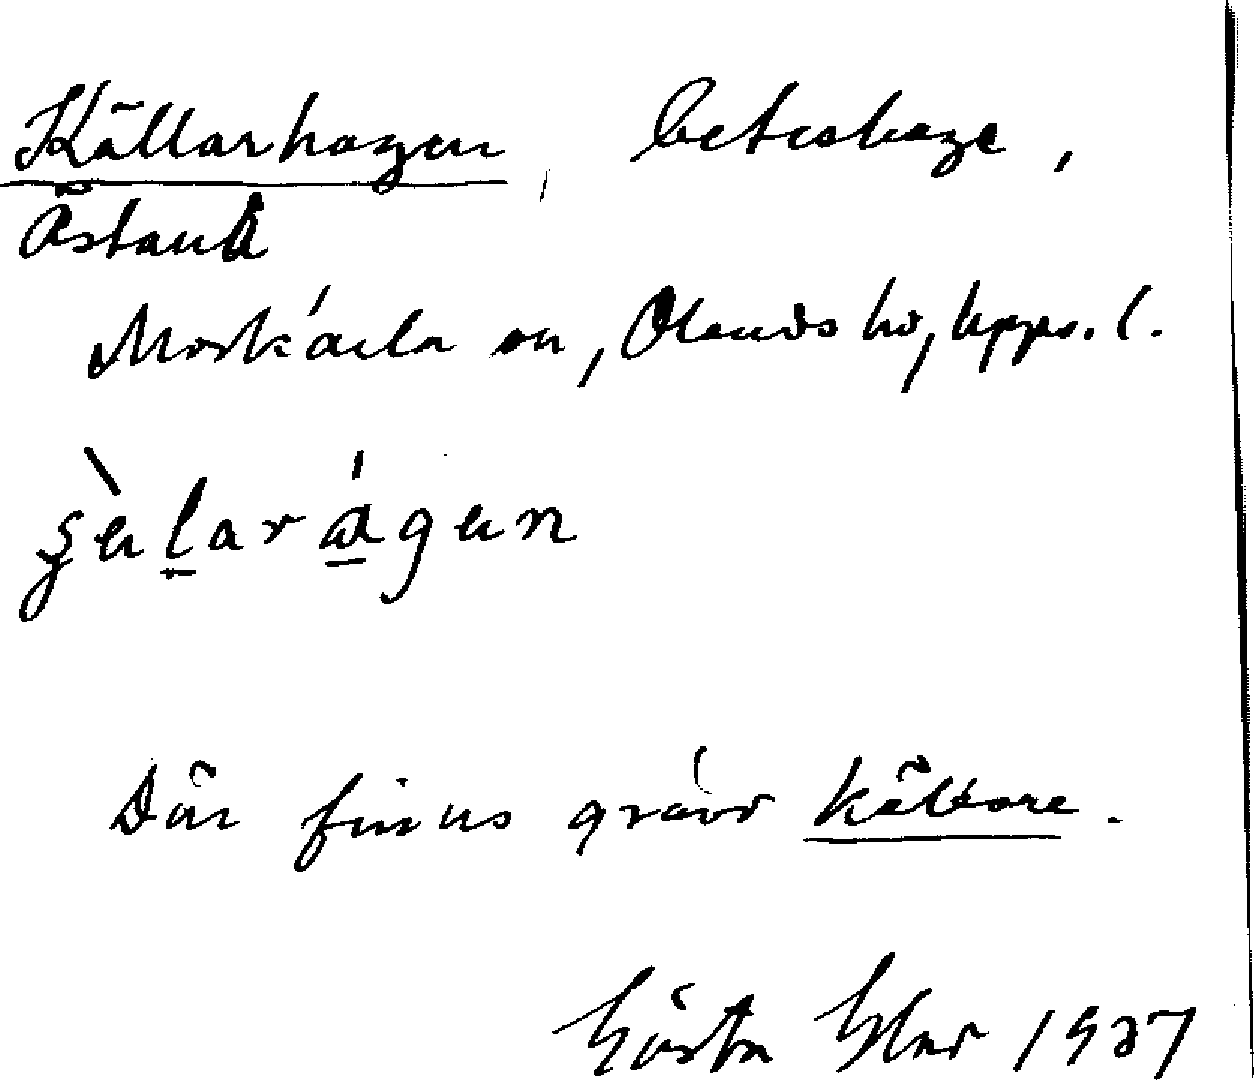 Källarhagen, beteshage,
Östanå
Morkarla sn, Olands hd, Upps. l.
Där finns grävd källare.
Gösta 1937